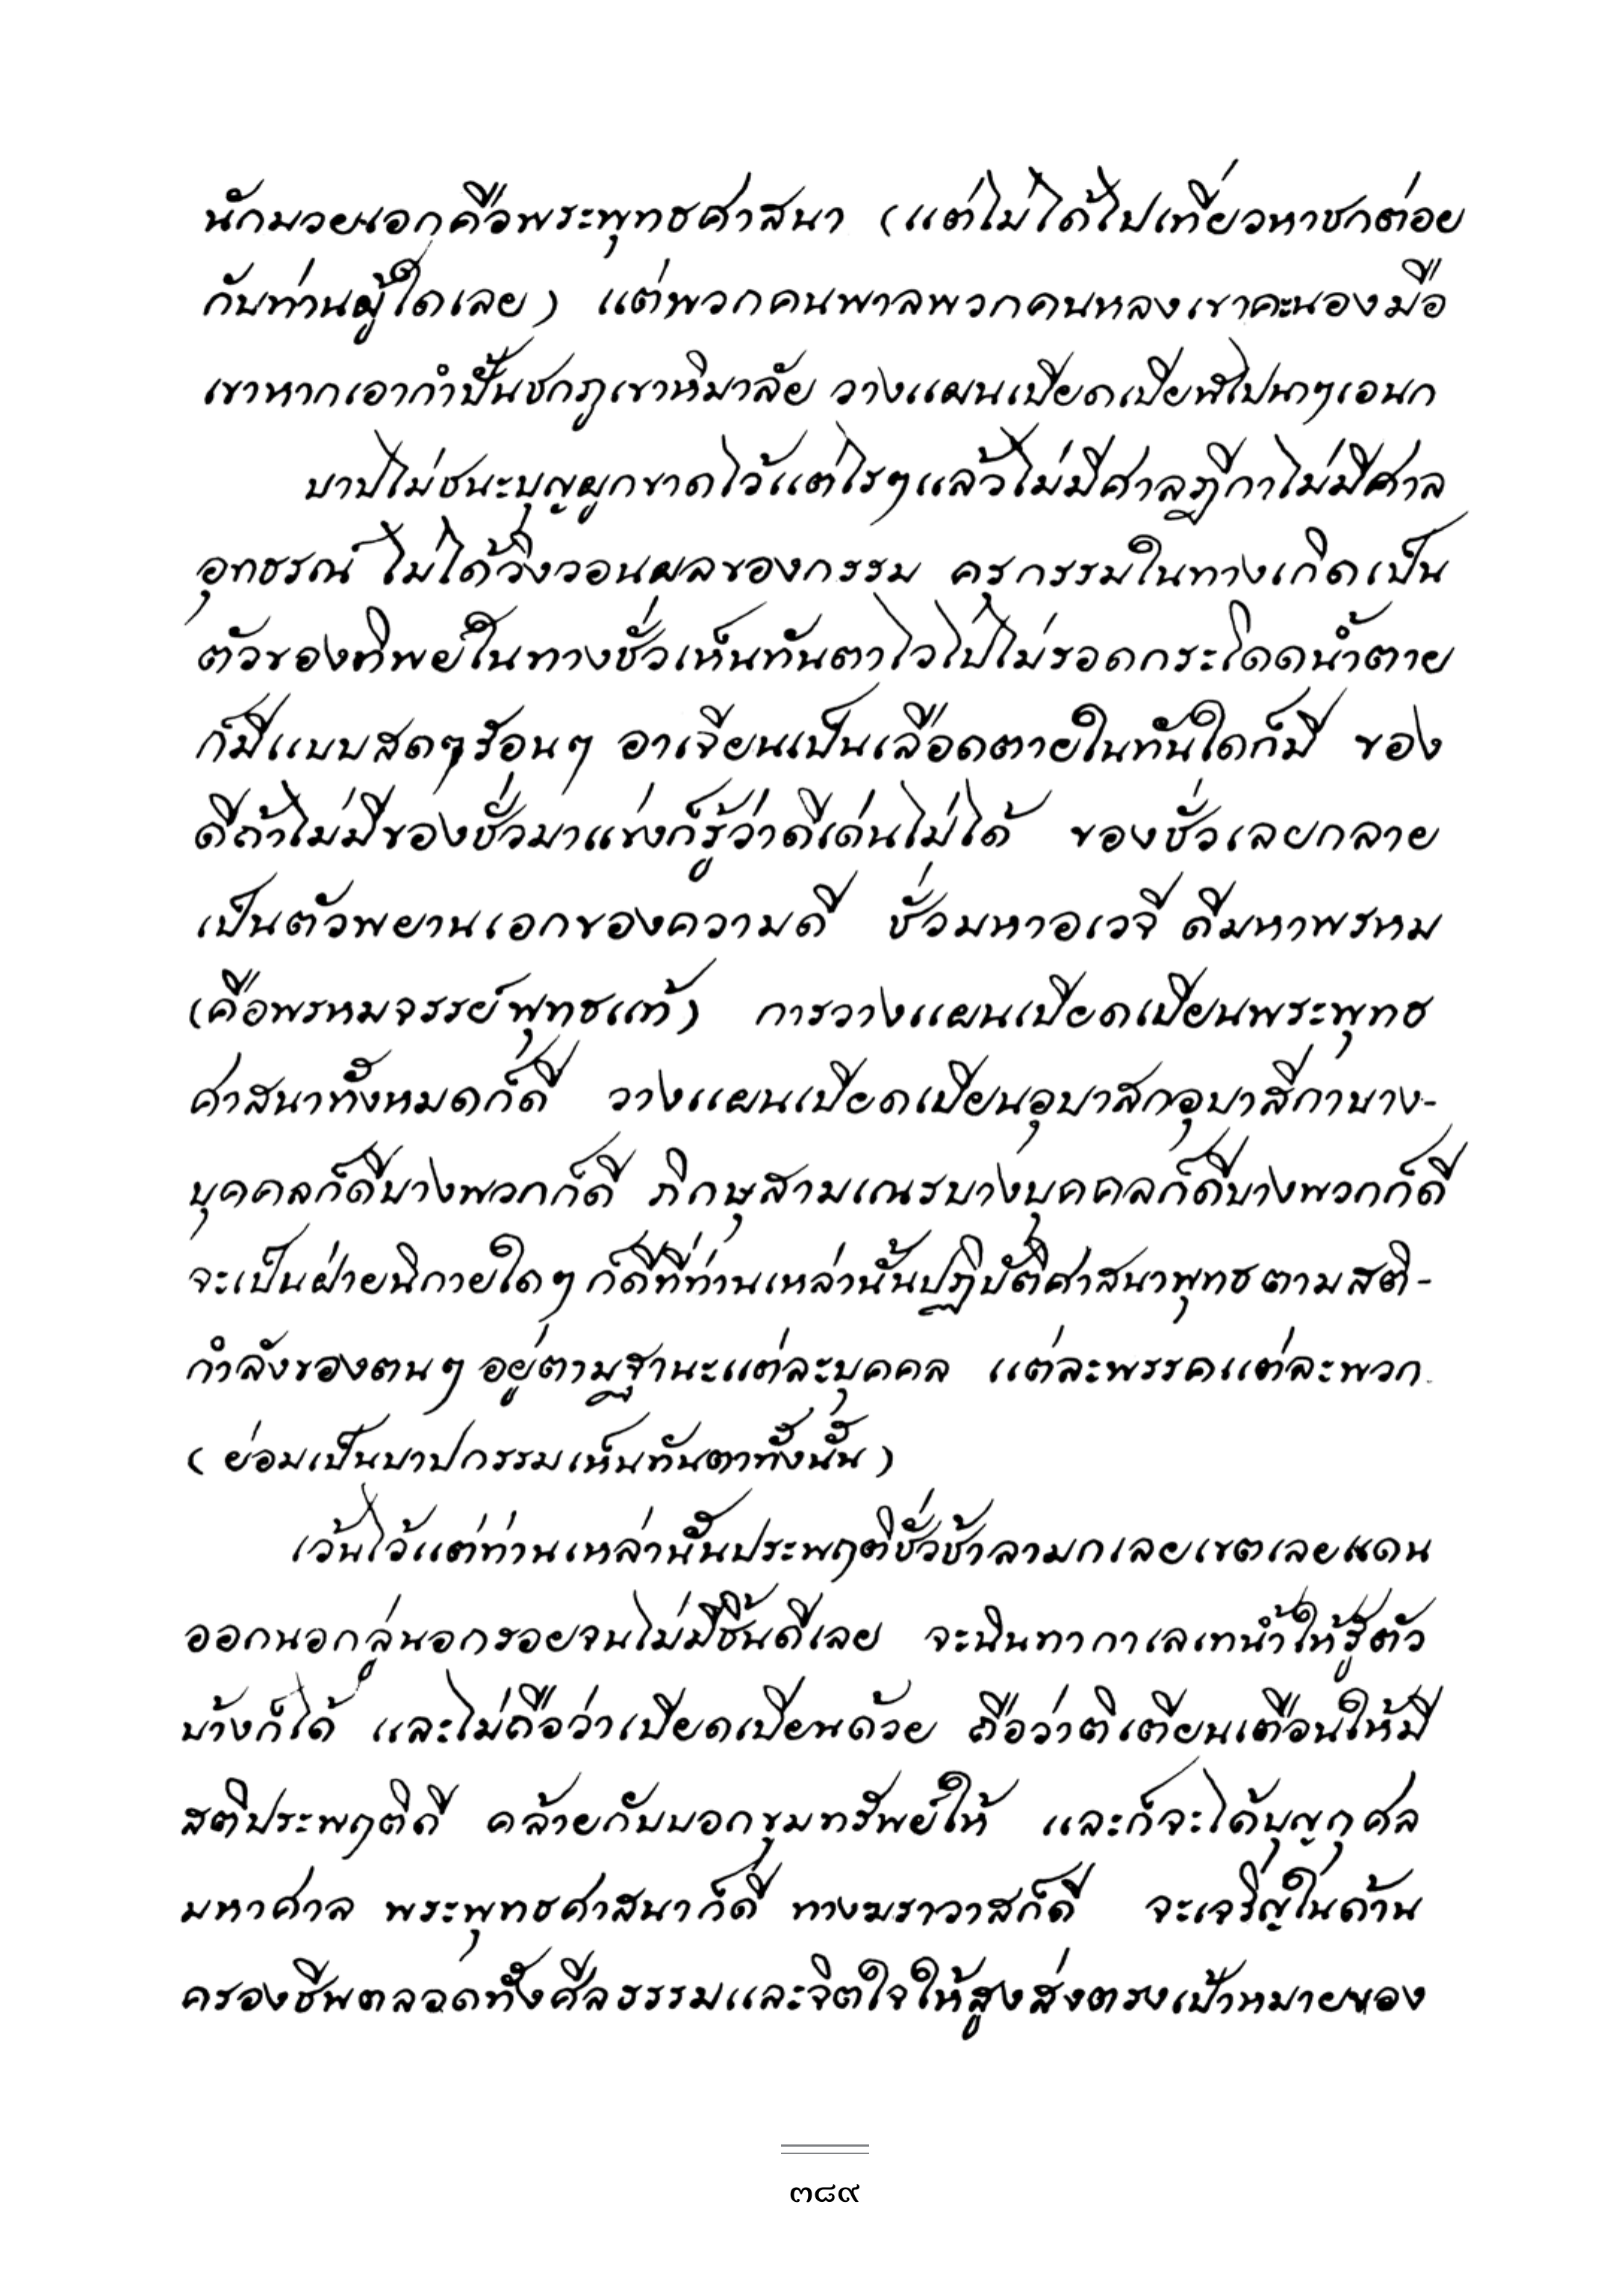 นักมวยนอกคือพระพุทธศาสนา (แต่ไม่ได้ไปเที่ยวหาชกต่อย
กับท่านผู้ใดเลย) แต่พวกคนพาลพวกคนหลงเขาคะนองมือ
เขาหากเอากำปั้นชกภูเขาหิมาลัย วางแผนเบียดเบียฬไปนาๆเอนก
บาปไม่ชนะบุญผูกขาดไว้แต่ไรๆแล้วไม่มีศาลฎีกาไม่มีศาล
อุทธรณ์ ไม่ได้วิงวอนผลของกรรม ครุกรรมในทางเกิดเป็น
ตัวของทิพย์ในทางชั่วเห็นทันตาไวไปไม่รอดกระโดดน้ำตาย
ก็มีแบบสดๆร้อนๆ อาเจียนเป็นเลือดตายในทันใดก็มี ของ
ดีถ้าไม่มีของชั่วมาแข่งก็รู้ว่าดีเด่นไม่ได้ ของชั่วเลยกลาย
เป็นตัวพยานเอกของความดี ชั่วมหาอเวจี ดีมหาพรหม
(คือพรหมจรรย์พุทธแท้) การวางแผนเบียดเบียนพระพุทธ
ศาสนาทั้งหมดก็ดี วางแผนเบียดเบียนอุบาสกอุบาสิกาบาง-
บุคคลก็ดีบางพวกก็ดี ภิกษุสามเณรบางบุคคลก็ดีบางพวกก็ดี
จะเป็นฝ่ายนิกายใดๆ ก็ดีที่ท่านเหล่านั้นปฏิบัติศาสนาพุทธตามสติ-
กำลังของตนๆ อยู่ตามฐานะแต่ละบุคคล แต่ละพรรคแต่ละพวก
(ย่อมเป็นบาปกรรมเห็นทันตาทั้งนั้น)
เว้นไว้แต่ท่านเหล่านั้นประพฤติชั่วช้าลามกเลยเขตเลยแดน
ออกนอกลู่นอกรอยจนไม่มีชิ้นดีเลย จะนินทากาเลเทน้ำให้รู้ตัว
บ้างก็ได้ และไม่ถือว่าเบียดเบียนด้วย ถือว่าติเตียนเตือนให้มี
สติประพฤติดี คล้ายกับบอกขุมทรัพย์ให้ และก็จะได้บุญกุศล
มหาศาล พระพุทธศาสนาก็ดี ทางฆราวาสก็ดี จะเจริญในด้าน
ครองชีพตลอดทั้งศีลธรรมและจิตใจให้สูงส่งตรงเป้าหมายของ
๓๘๙